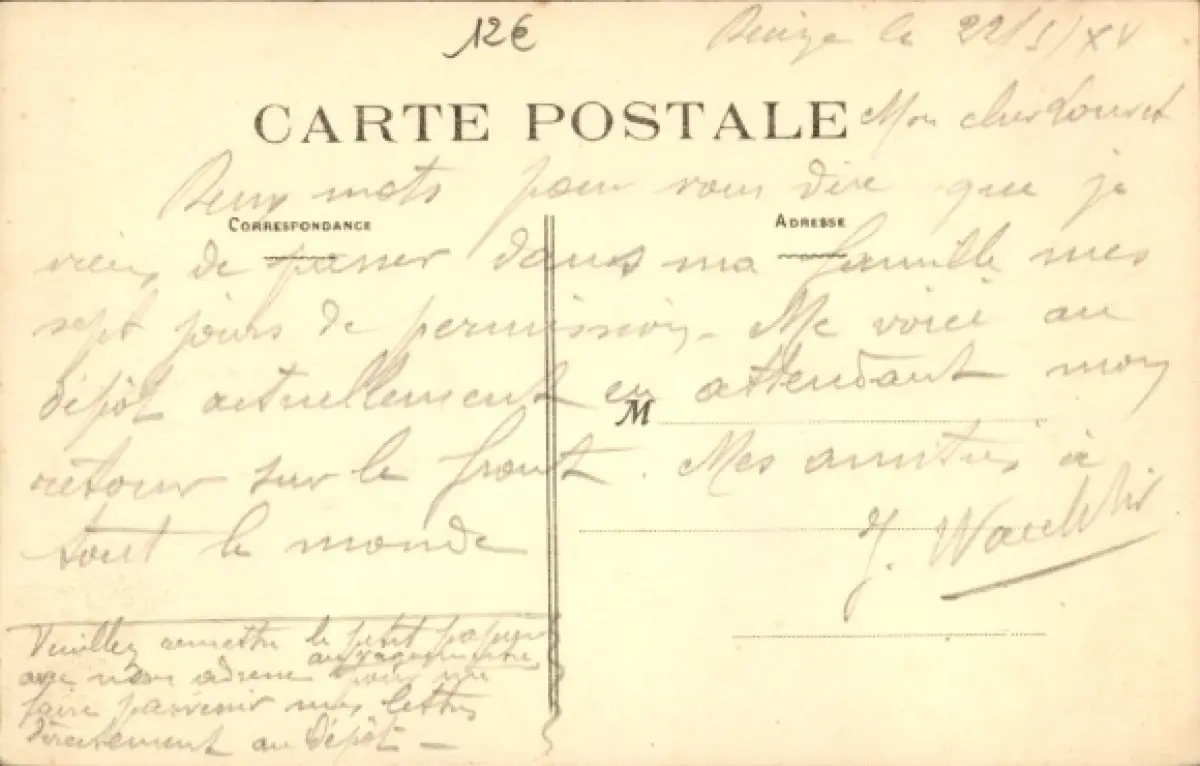 12€
le 22/5/XV
CARTE POSTALE
Mon cher
Deux mots pour vous dire que je
CORRESPONDANCE
ADRESSE
viens de passer dans ma famille mes
sept jours de permission. Me voici au
dépôt actuellement en attendant mon
M
retour sur le front. Mes amitiés à
tout le monde
J.
Veuillez remettre le petit papier
avec mon adresse pour me
faire parvenir mes lettres
directement au dépôt